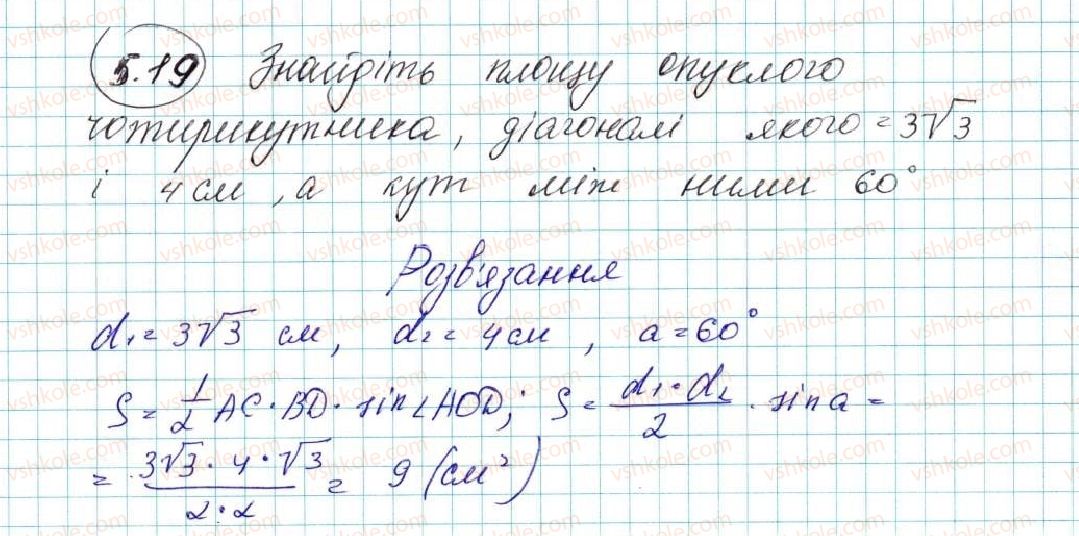 5.19 Знайдіть площу опуклого
чотирикутника, діагоналі якого = 3√3
і 4 см, а кут між ними 60°
Розв'язання
d₁ = 3√3 см, d₂ = 4 см, a = 60°
S = 1/2 AC · BD · sin∠AOD; S = (d₁ · d₂)/2 · sin a =
= (3√3 · 4 · √3)/(2 · 2) = 9 (см²)